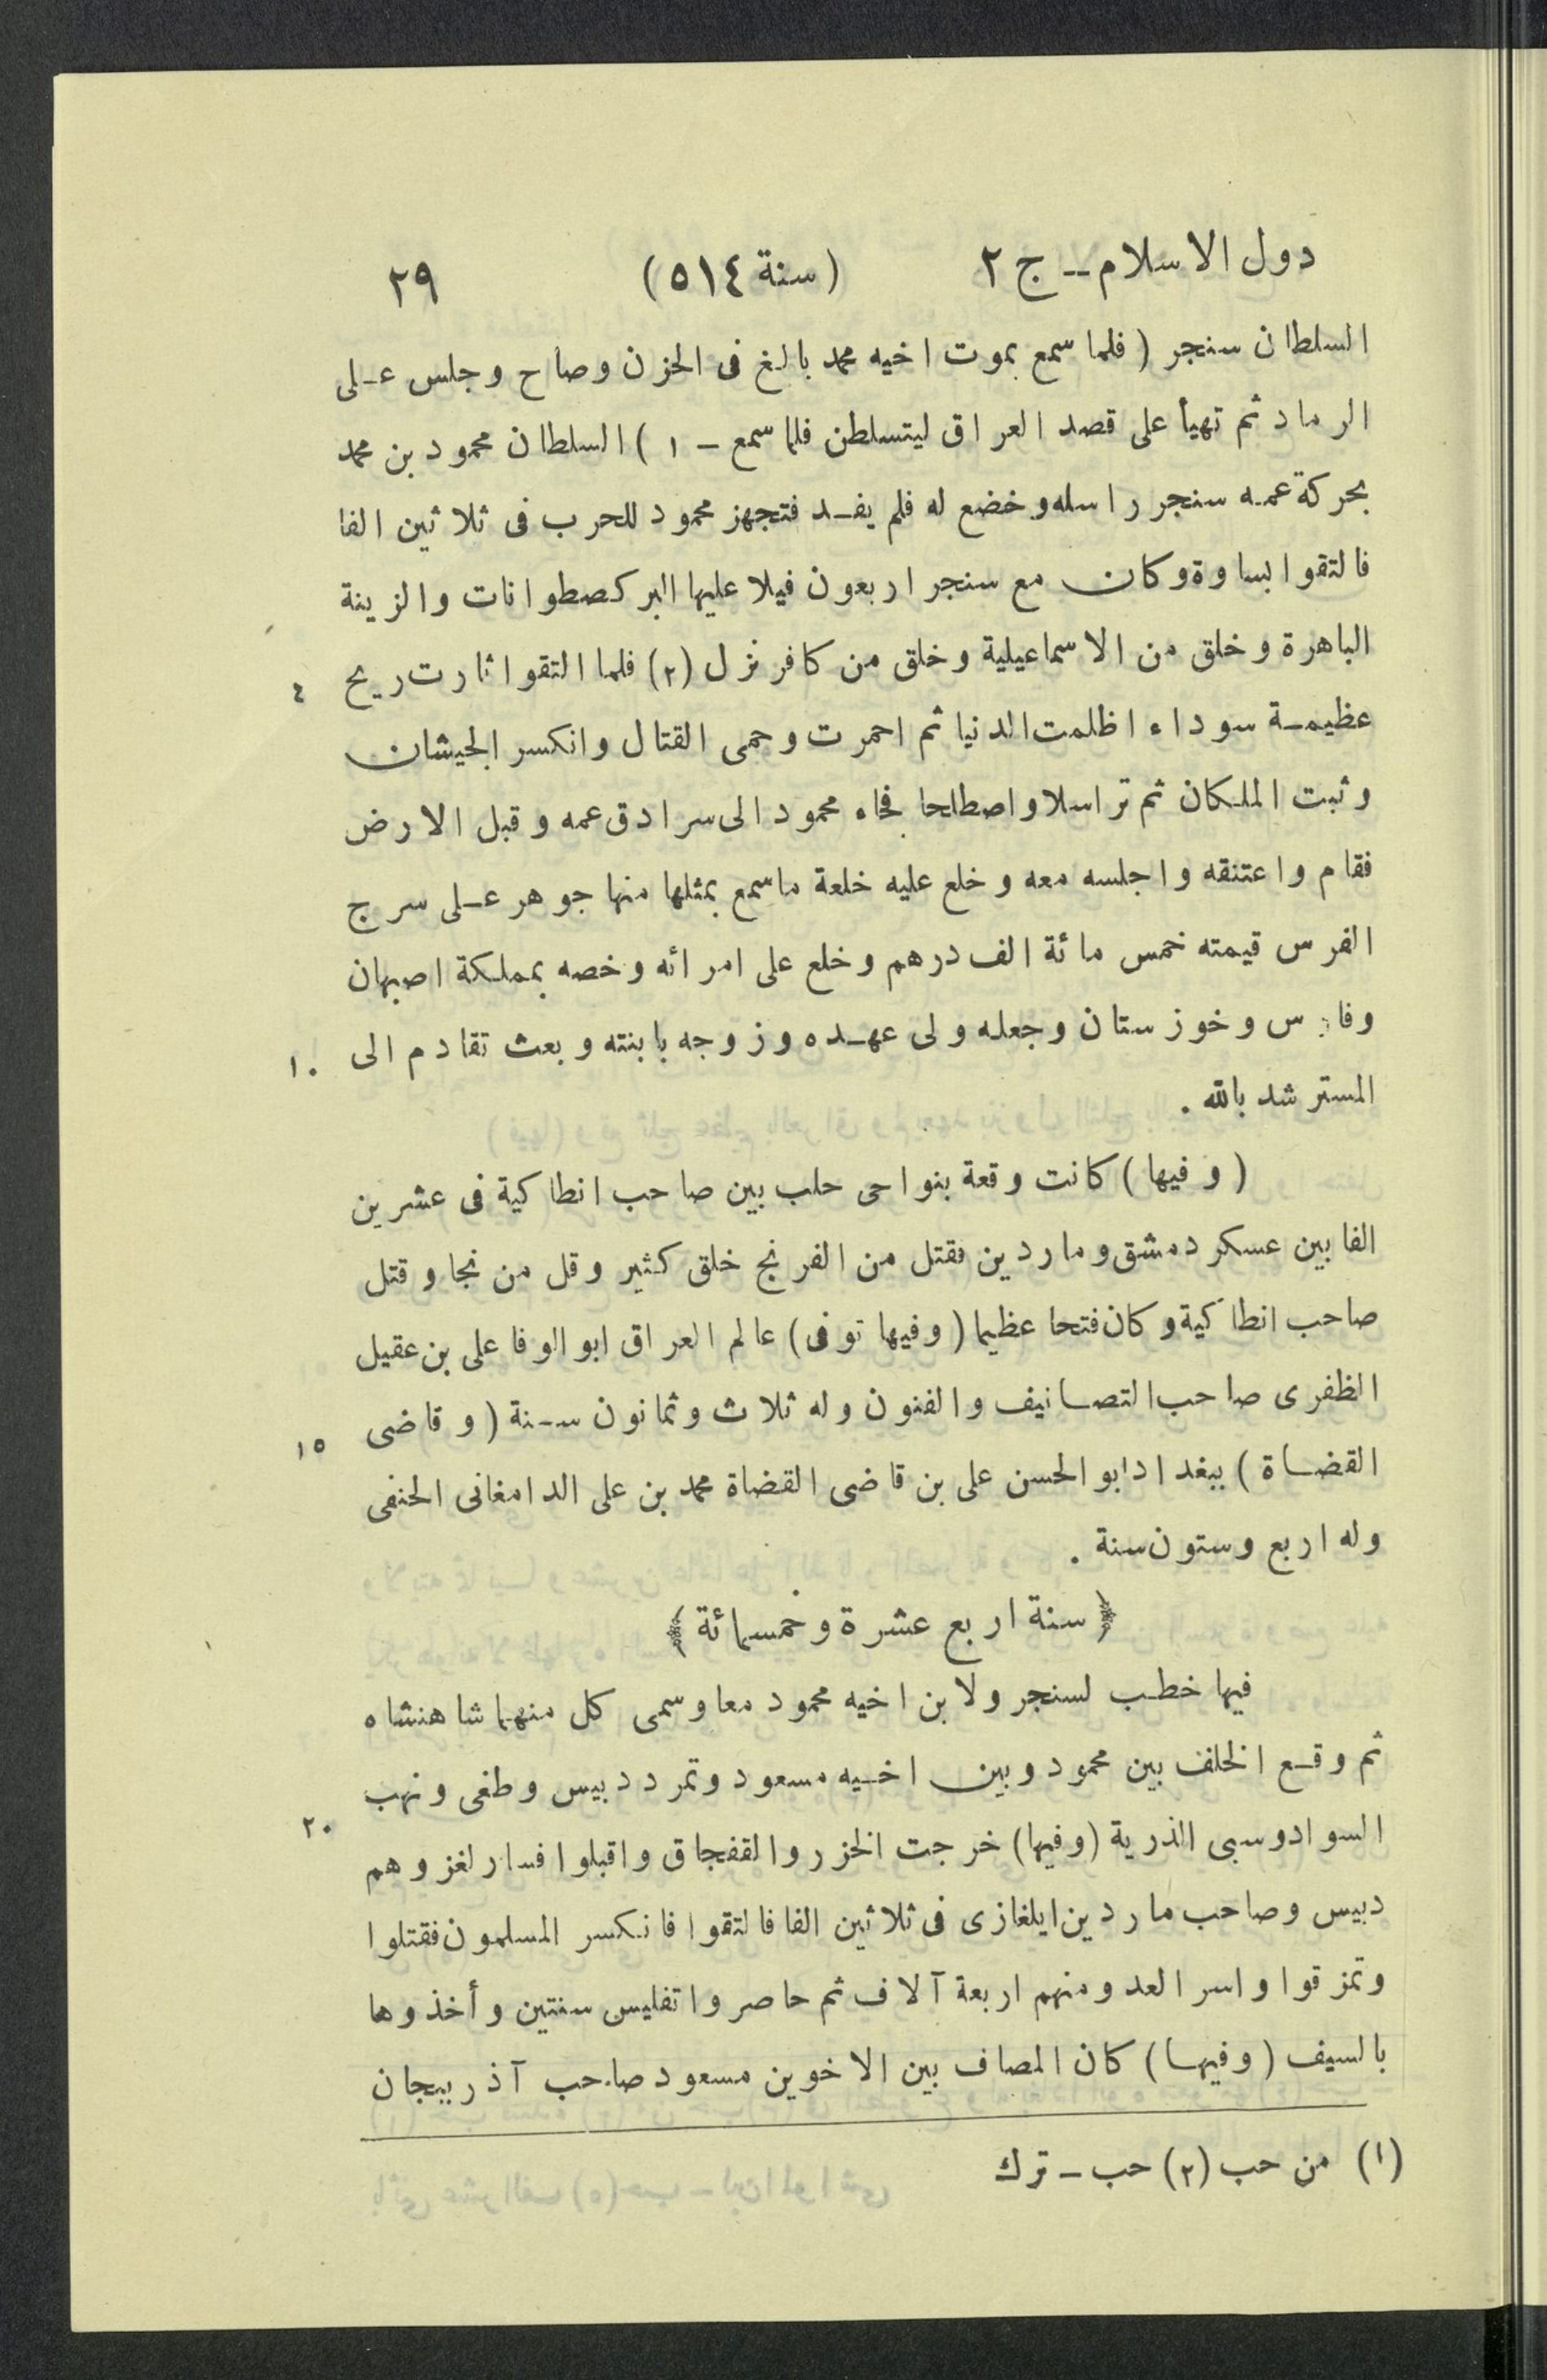 دول الاسلام ــ ج ٢ (سنة ٥١٤) ٢٩
السلطان سنجر ( فلما سمع بموت اخيه محمد بالغ فى الحزن وصاح وجلس على
الرماد ثم تهيأ على قصد العراق ليتسلطن فلما سمع ــ ١ ) السلطان محمود بن محمد
بحركة عمه سنجر راسله وخضع له فلم يفد فتجهز محمود للحرب فى ثلاثين الفا
فالتقوا بساوة وكان مع سنجر اربعون فيلا عليها البركصطوانات والزينة
الباهرة وخلق من الاسماعيلية وخلق من كافر نزل (٢) فلما التقوا ثارت ريح ٤
عظيمة سوداء اظلمت الدنيا ثم احمرت وحمى القتال وانكسر الجيشان
وثبت الملكان ثم تراسلا واصطلحا فجاء محمود الى سرادق عمه وقبل الارض
فقام واعتنقه واجلسه معه وخلع عليه خلعة ماسمع بمثلها منها جوهر على سرج
الفرس قيمته خمس مائة الف درهم وخلع على امرائه وخصه بمملكة اصبهان
وفارس وخوزستان وجعله ولى عهده وزوجه بابنته وبعث تقادم الى ١٠
المسترشد بالله .
( وفيها ) كانت وقعة بنواحى حلب بين صاحب انطاكية فى عشرين
الفا بين عسكر دمشق وماردين فقتل من الفرنج خلق كثير وقل من نجا وقتل
صاحب انطاكية وكان فتحا عظيما ( وفيها توفى ) عالم العراق ابو الوفا على بن عقيل
الظفرى صاحب التصانيف والفنون وله ثلاث وثمانون سنة ( وقاضى ١٥
القضاة ) ببغداد ابو الحسن على بن قاضى القضاة محمد بن على الدامغانى الحنفى
وله اربع وستون سنة .
﴿ سنة اربع عشرة وخمسمائة ﴾
فيها خطب لسنجر ولابن اخيه محمود معا وسمى كل منهما شاهنشاه
ثم وقع الخلف بين محمود وبين اخيه مسعود وتمرد دبيس وطغى ونهب
السواد وسبى الذرية (وفيها) خرجت الخزر والقفجاق واقبلوا فسار لغزوهم ٢٠
دبيس وصاحب ماردين ايلغازى فى ثلاثين الفا فالتقوا فانكسر المسلمون فقتلوا
وتمزقوا واسر العدو منهم اربعة آلاف ثم حاصروا تفليس سنتين وأخذوها
بالسيف ( وفيها ) كان المصاف بين الاخوين مسعود صاحب آذربيجان
(١) من حب (٢) حب ــ ترك